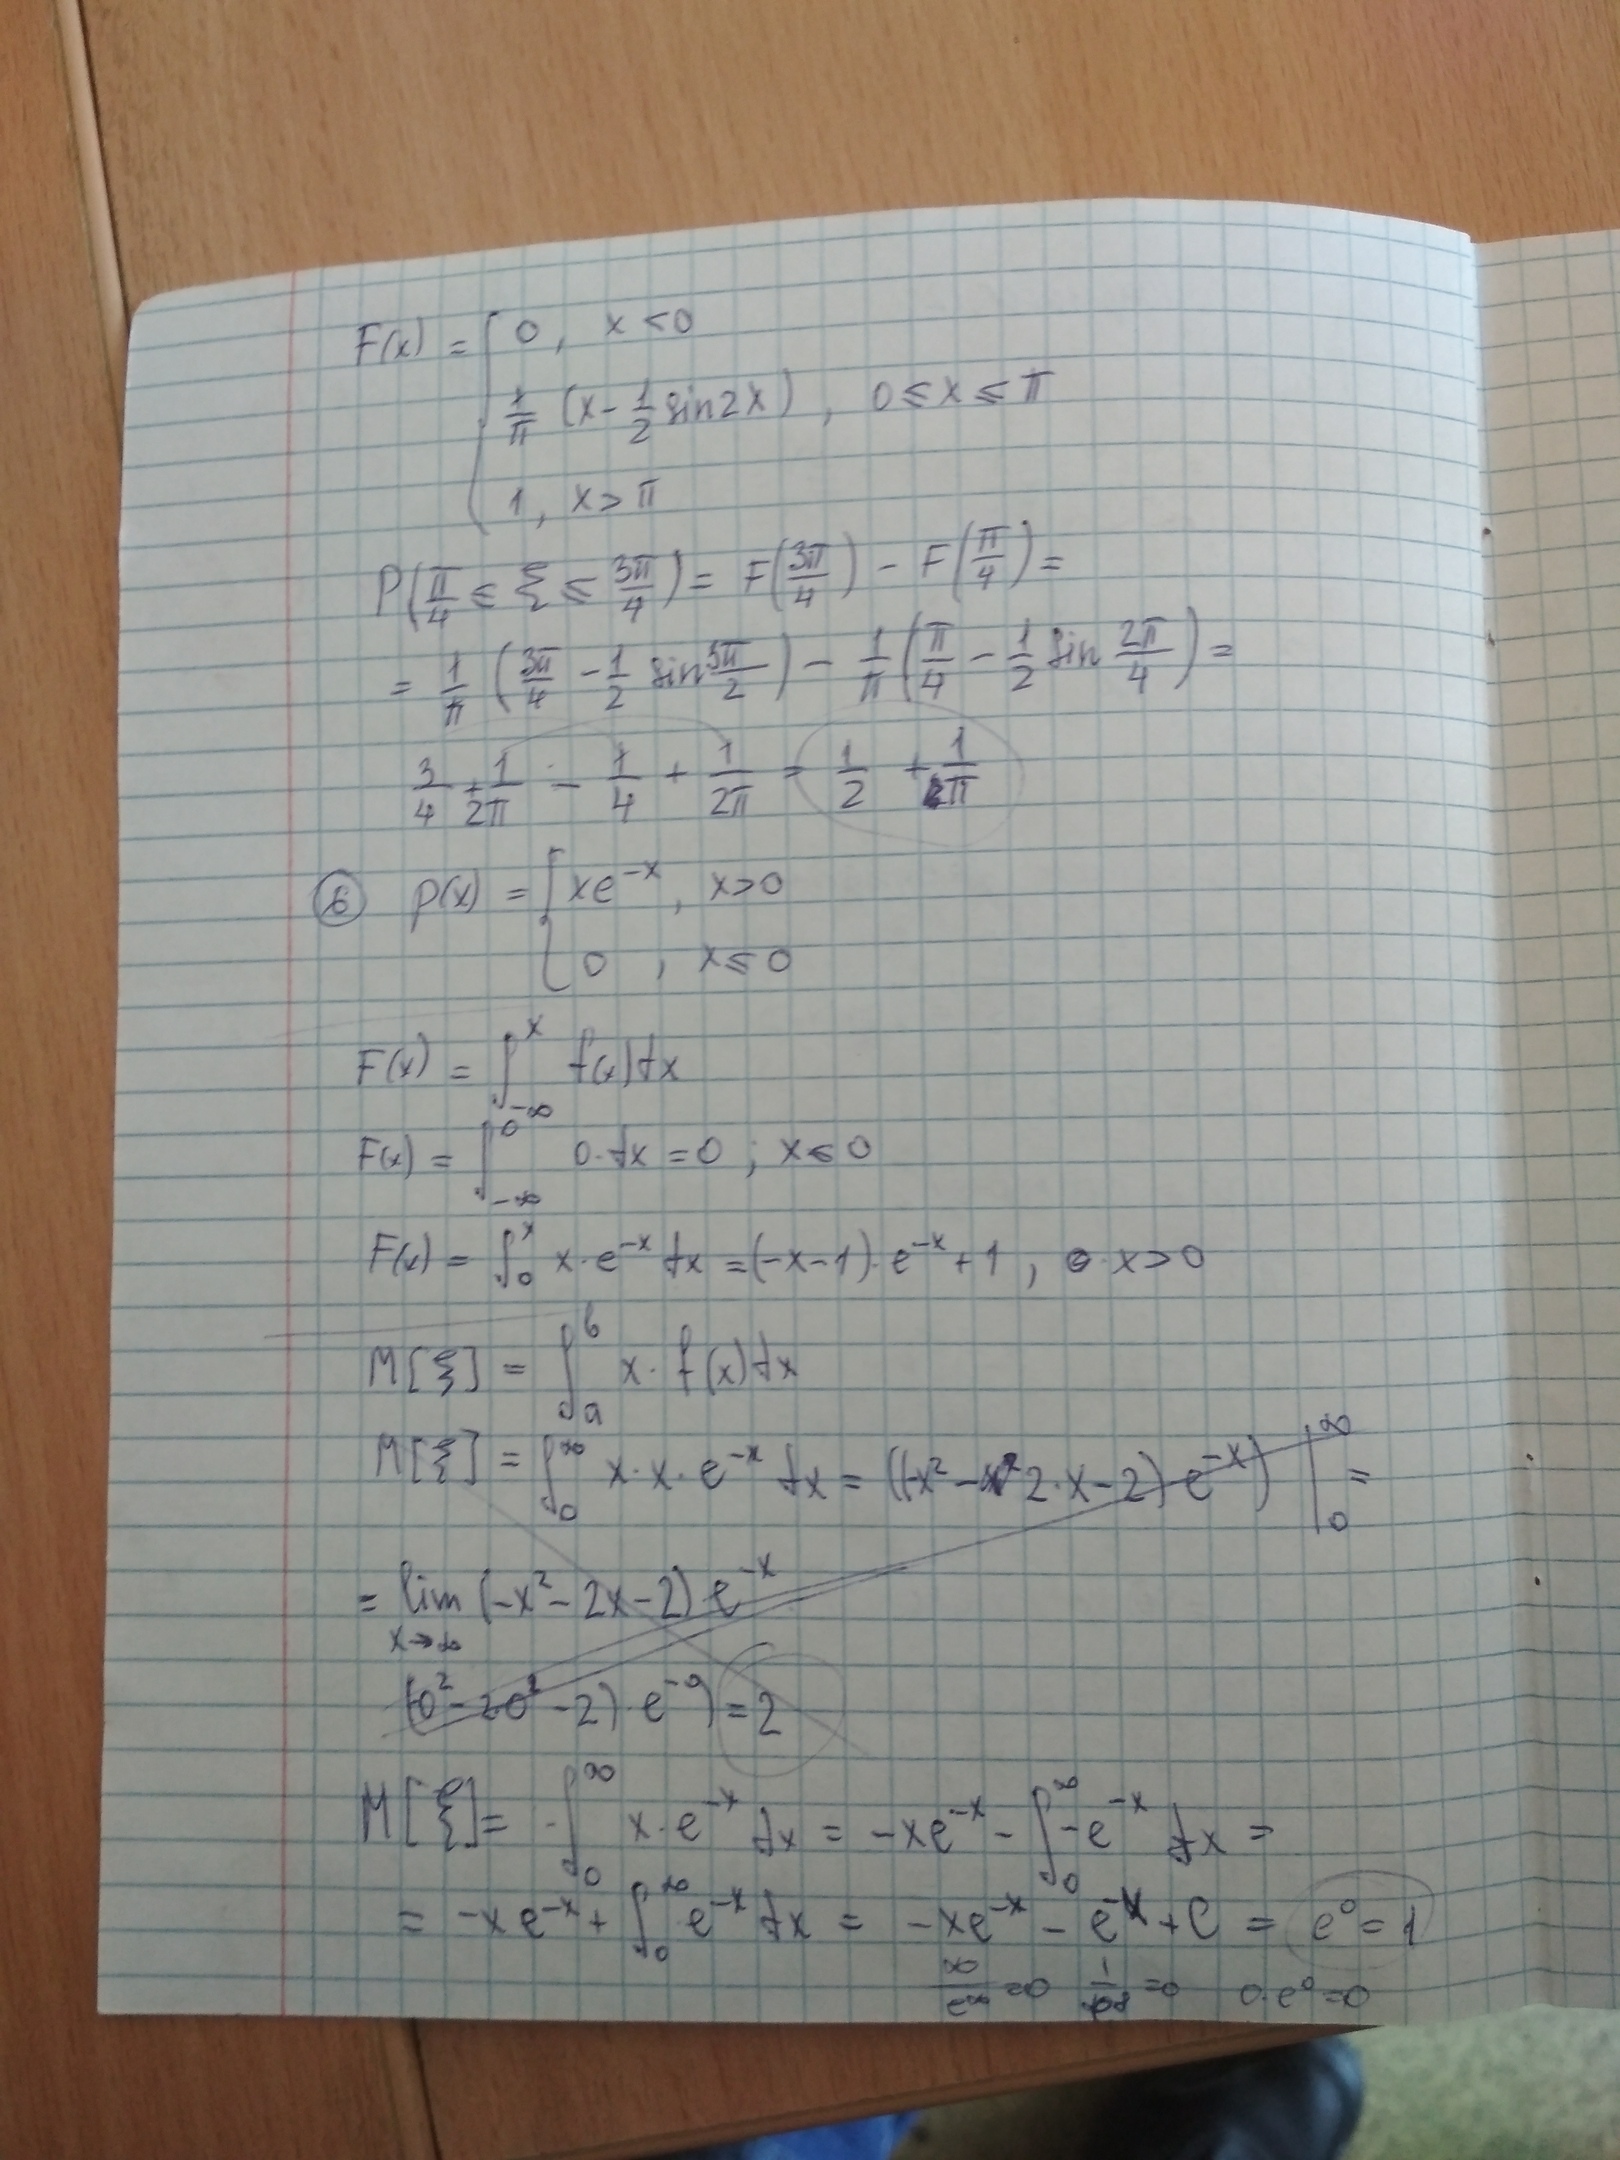 F(x) = { 0 , x < 0
1/π (x - 1/2 sin2x) , 0 ≤ x ≤ π
1 , x > π
P(π/4 ≤ ξ ≤ 3π/4) = F(3π/4) - F(π/4) =
= 1/π (3π/4 - 1/2 sin 3π/2) - 1/π (π/4 - 1/2 sin 2π/4) =
3/4 + 1/2π - 1/4 + 1/2π = 1/2 + 1/π
⑥ p(x) = { xe^{-x} , x > 0
0 , x ≤ 0
F(x) = ∫_{-∞}^{x} f(x)dx
F(x) = ∫_{-∞}^{0} 0·dx = 0 ; x ≤ 0
F(x) = ∫_{0}^{x} x·e^{-x} dx = (-x-1)·e^{-x} + 1 , x > 0
M[ξ] = ∫_{a}^{b} x·f(x)dx
M[ξ] = ∫_{0}^{∞} x·x·e^{-x} dx = ((-x² - 2·x - 2) e^{-x}) |_{0}^{∞} =
= lim_{x→∞} (-x² - 2x - 2) e^{-x}
(0² - 20 - 2)·e^{-0}) = 2
M[ξ] = ∫_{0}^{∞} x·e^{-x} dx = -xe^{-x} - ∫_{0}^{∞} -e^{-x} dx =
= -xe^{-x} + ∫_{0}^{∞} e^{-x} dx = -xe^{-x} - e^{-x} + C = e⁰ = 1
∞/e^∞ = 0 = 0 0·e⁰ = 0